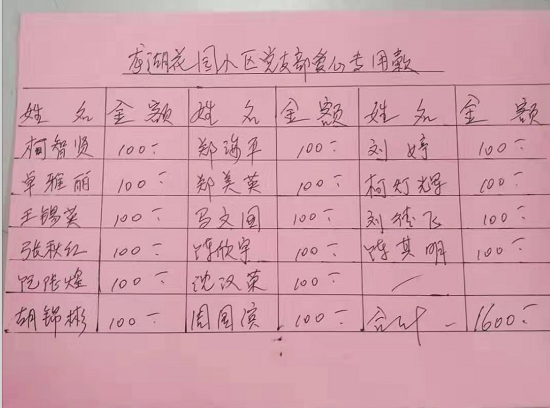 龙湖花园小区党支部爱心专用款
姓名 金额 姓名 金额 姓名 金额
柯智贤 100- 郑海平 100- 刘婷 100-
卓雅丽 100- 郑美英 100- 柯灯辉 100-
王锡英 100- 马文国 100- 刘 飞 100-
张秋红 100- 陈欣宇 100- 陈其明 100-
阮 煌 100- 沈汉荣 100- /
胡锦彬 100- 周国滨 100- 合计 - 1600-